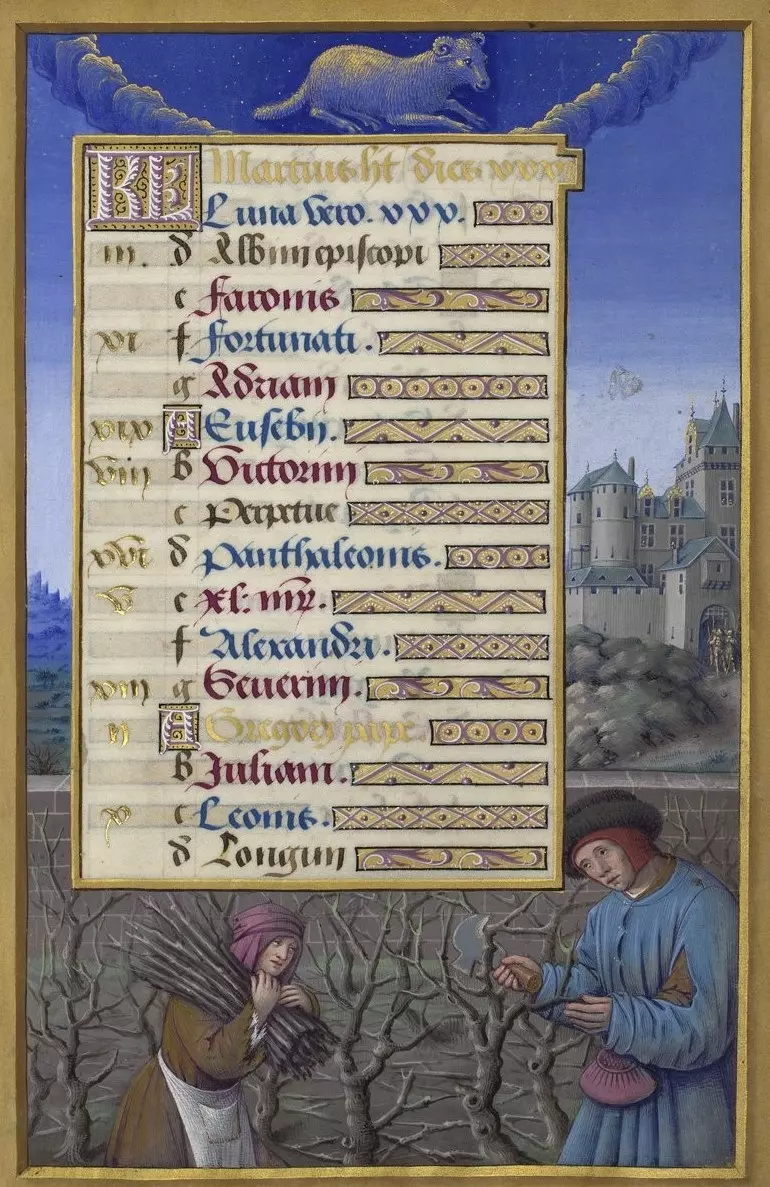 KL Martius ht dies xxxi
Luna vero. xxx.
iii. d Albini episcopi
e Faronis
xi f Fortunati.
g Adriani
xix A Eusebii.
viii b Victorini
c Perpetue
xvi d Panthaleonis.
v e xl. mr.
f Alexandri.
xiii g Seuerini.
ii A Gregorii pape
b Juliani.
x c Leonis.
d Longini